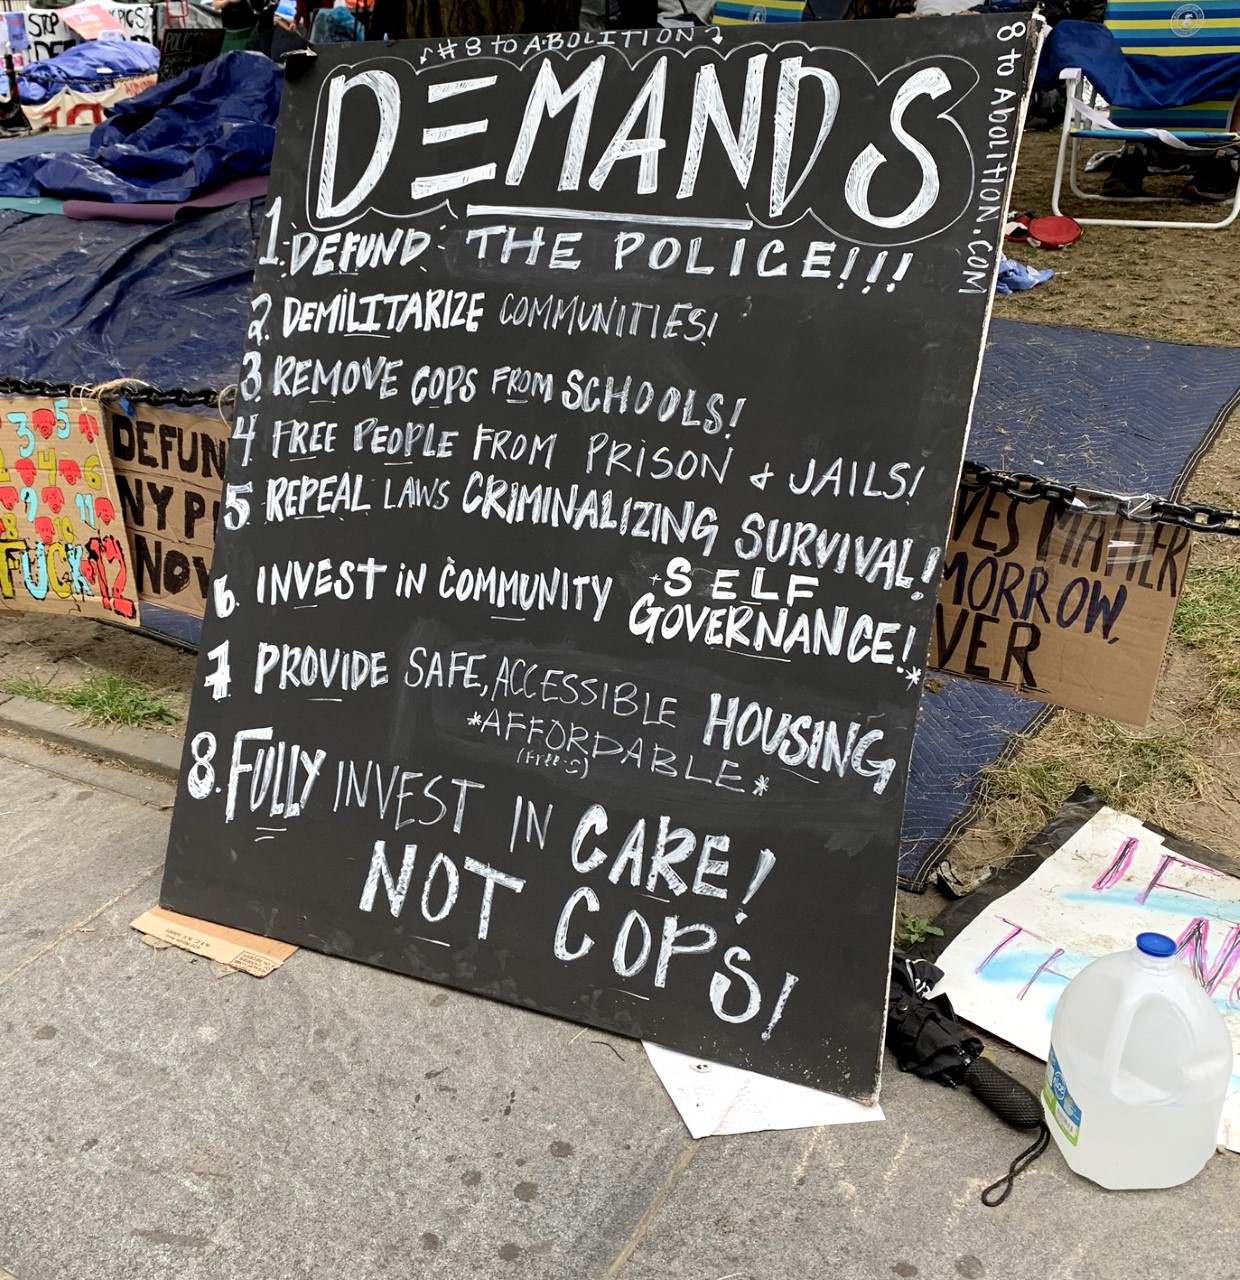 #8 to ABOLITION
8 to ABOLITION.COM
DEMANDS
1. DEFUND THE POLICE!!!
2. DEMILITARIZE COMMUNITIES!
3 REMOVE COPS FROM SCHOOLS!
4 FREE PEOPLE FROM PRISON + JAILS!
5 REPEAL LAWS CRIMINALIZING SURVIVAL!
6. INVEST iN COMMUNITY SELF
GOVERNANCE!
7 PROVIDE SAFE, ACCESSIBLE HOUSING
*AFFORDABLE*
(free :)
8. FULLY INVEST IN CARE!
NOT COPS!
STOP
3 5
2 4 6
7 9 11
8 10
FUCK 12
DEFUN
NY P
NOV
VES MATTER
MORROW,
VER
IF
NO
TH